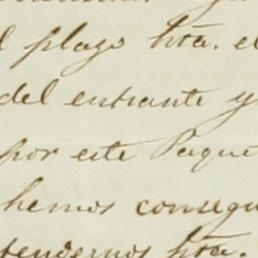 l plazo hta. el
del entrante y
por este Paque
hemos consegu
tendernos hta.